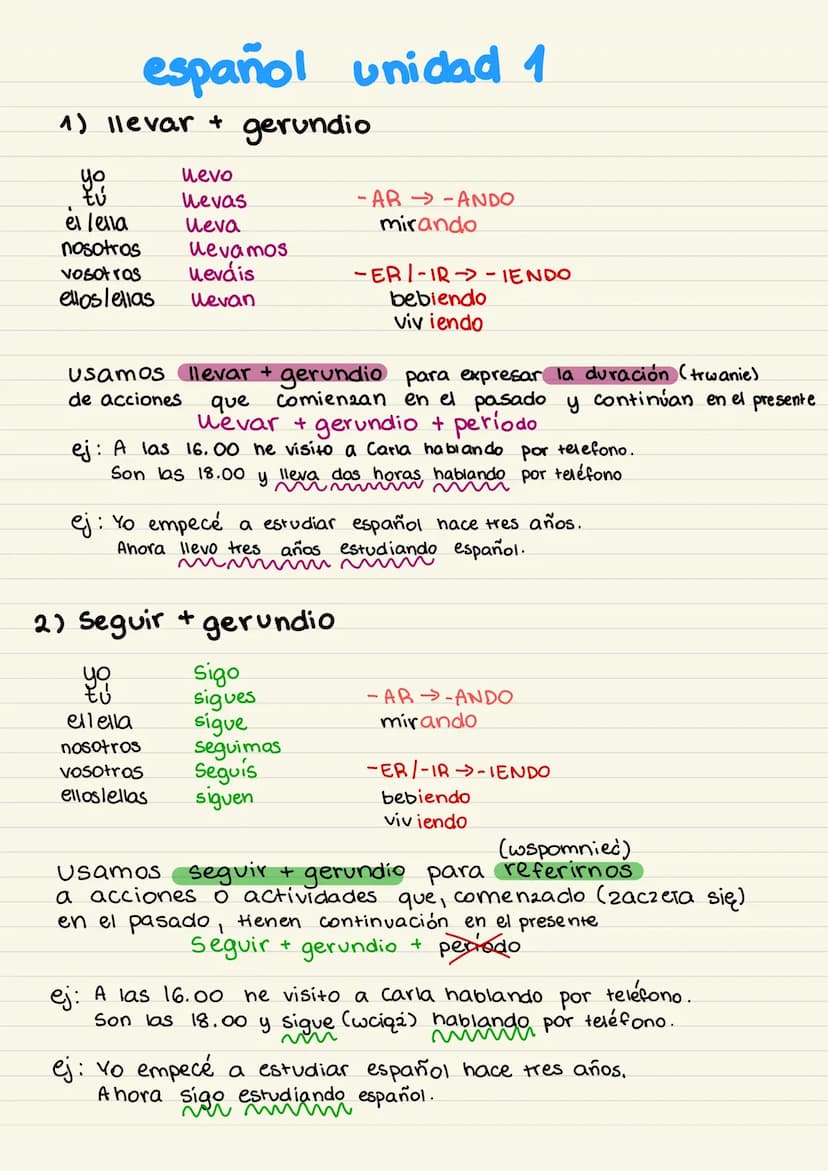 español unidad 1
1) llevar + gerundio
yo llevo
tú llevas -AR → -ANDO
él/ella lleva mirando
nosotros llevamos
vosotros lleváis -ER/-IR → -IENDO
ellos/ellas llevan bebiendo
viviendo
usamos llevar + gerundio para expresar la duración (trwanie)
de acciones que comienzan en el pasado y continúan en el presente
llevar + gerundio + período
ej: A las 16.00 he visito a Carla hablando por telefono.
Son las 18.00 y lleva dos horas hablando por teléfono
ej: Yo empecé a estudiar español hace tres años.
Ahora llevo tres años estudiando español.
2) Seguir + gerundio
yo sigo
tú sigues -AR → -ANDO
el/ella sigue mirando
nosotros seguimos
vosotros seguís -ER/-IR → -IENDO
ellos/ellas siguen bebiendo
viviendo
(wspomnieć)
usamos seguir + gerundio para referirnos
a acciones o actividades que, comenzado (zaczęta się)
en el pasado, tienen continuación en el presente
Seguir + gerundio + período
ej: A las 16.00 he visito a Carla hablando por teléfono.
Son las 18.00 y sigue (wciąż) hablando por teléfono.
ej: Yo empecé a estudiar español hace tres años.
Ahora sigo estudiando español.